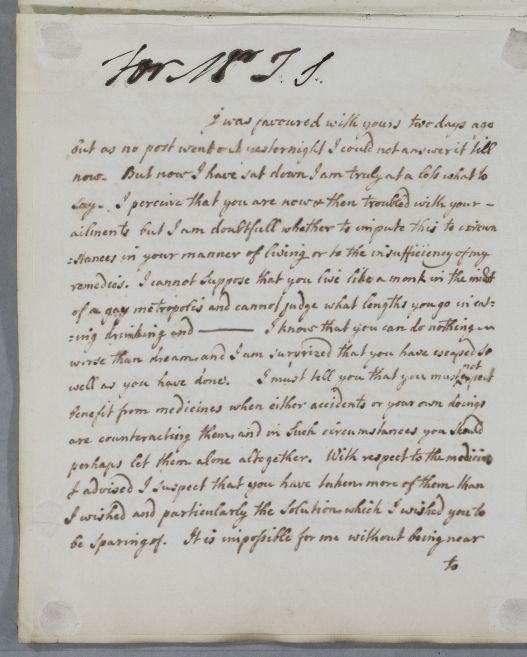 For Mr J. S.
I was favoured with yours two days ago
but as no post went out yesternight I could not answer it till
now. But now I have sat down I am truly at a loss what to
say. I perceive that you are now & then troubled with your
ailments but I am doubtfull whether to impute this to circum
=stances in your manner of living or to the insufficiency of my
remedies. I cannot suppose that you live like a monk in the midst
of a gay metropolis and cannot judge what lengths you go in eat=
=ing drinking and ——— I know that you can do nothing
worse than dream and I am surprized that you have escaped so
well as you have done. I must tell you that you must not expect
benefit from medicines when either accidents or your own doings
are counteracting them and in such circumstances you should
perhaps let them alone altogether. With respect to the medicine
I advised I suspect that you have taken more of them than
I wished and particularly the Solution which I wished you to
be sparing of. It is impossible for me without being near
to